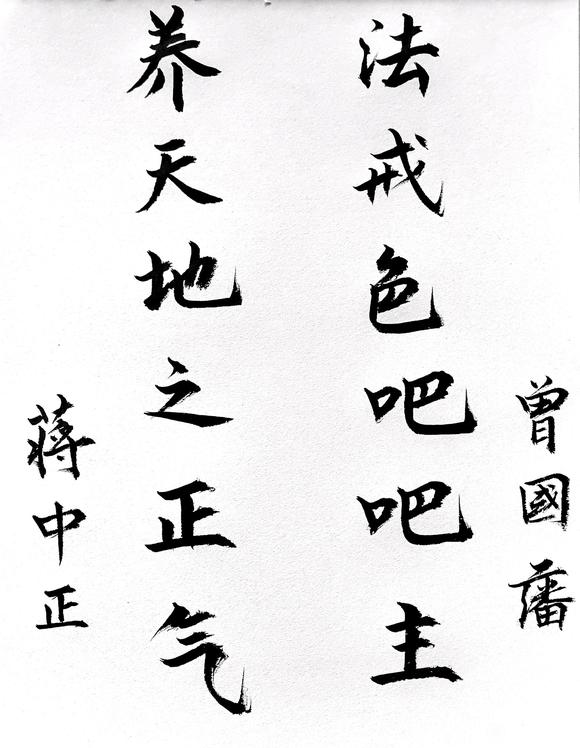 曾國藩
法戒色吧吧主
养天地之正气
蔣中正